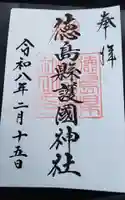 奉拝
徳島縣護國神社
令和八年二月十五日